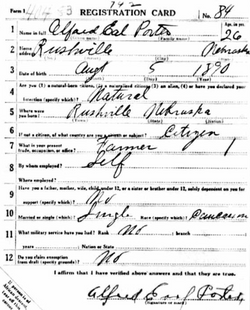 Form 1 REGISTRATION CARD No. 84
1 Name in full Alfred Earl Porter Age, in yrs. 26
2 Home address Rushville Nebraska
3 Date of birth Aug 5 1890
4 Are you (1) a natural-born citizen, (2) a naturalized citizen, (3) an alien, (4) or have you declared your intention (specify which)? Natural
5 Where were you born? Rushville Nebraska
6 If not a citizen, of what country are you a citizen or subject? Citizen
7 What is your present trade, occupation, or office? Farmer 1
8 By whom employed? Self
Where employed?
9 Have you a father, mother, wife, child under 12, or a sister or brother under 12, solely dependent on you for support (specify which)? No
10 Married or single (which)? Single Race (specify which)? Caucasian
11 What military service have you had? Rank No branch
years Nation or State
12 Do you claim exemption from draft (specify grounds)? No
I affirm that I have verified above answers and that they are true.
Alfred Earl Porter